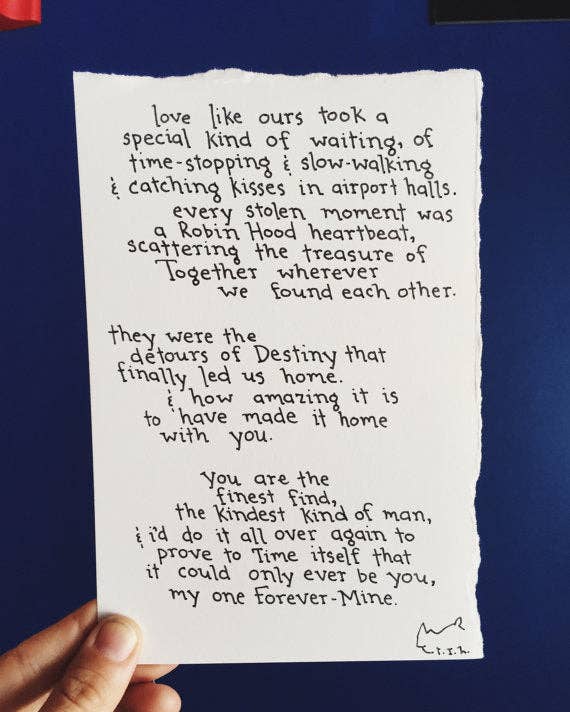 love like ours took a
special kind of waiting, of
time-stopping & slow-walking
& catching kisses in airport halls.
every stolen moment was
a Robin Hood heartbeat,
scattering the treasure of
Together wherever
we found each other.
they were the
detours of Destiny that
finally led us home.
& how amazing it is
to have made it home
with you.
you are the
finest find,
the kindest kind of man,
& i'd do it all over again to
prove to Time itself that
it could only ever be you,
my one Forever-Mine.
r.s.h.